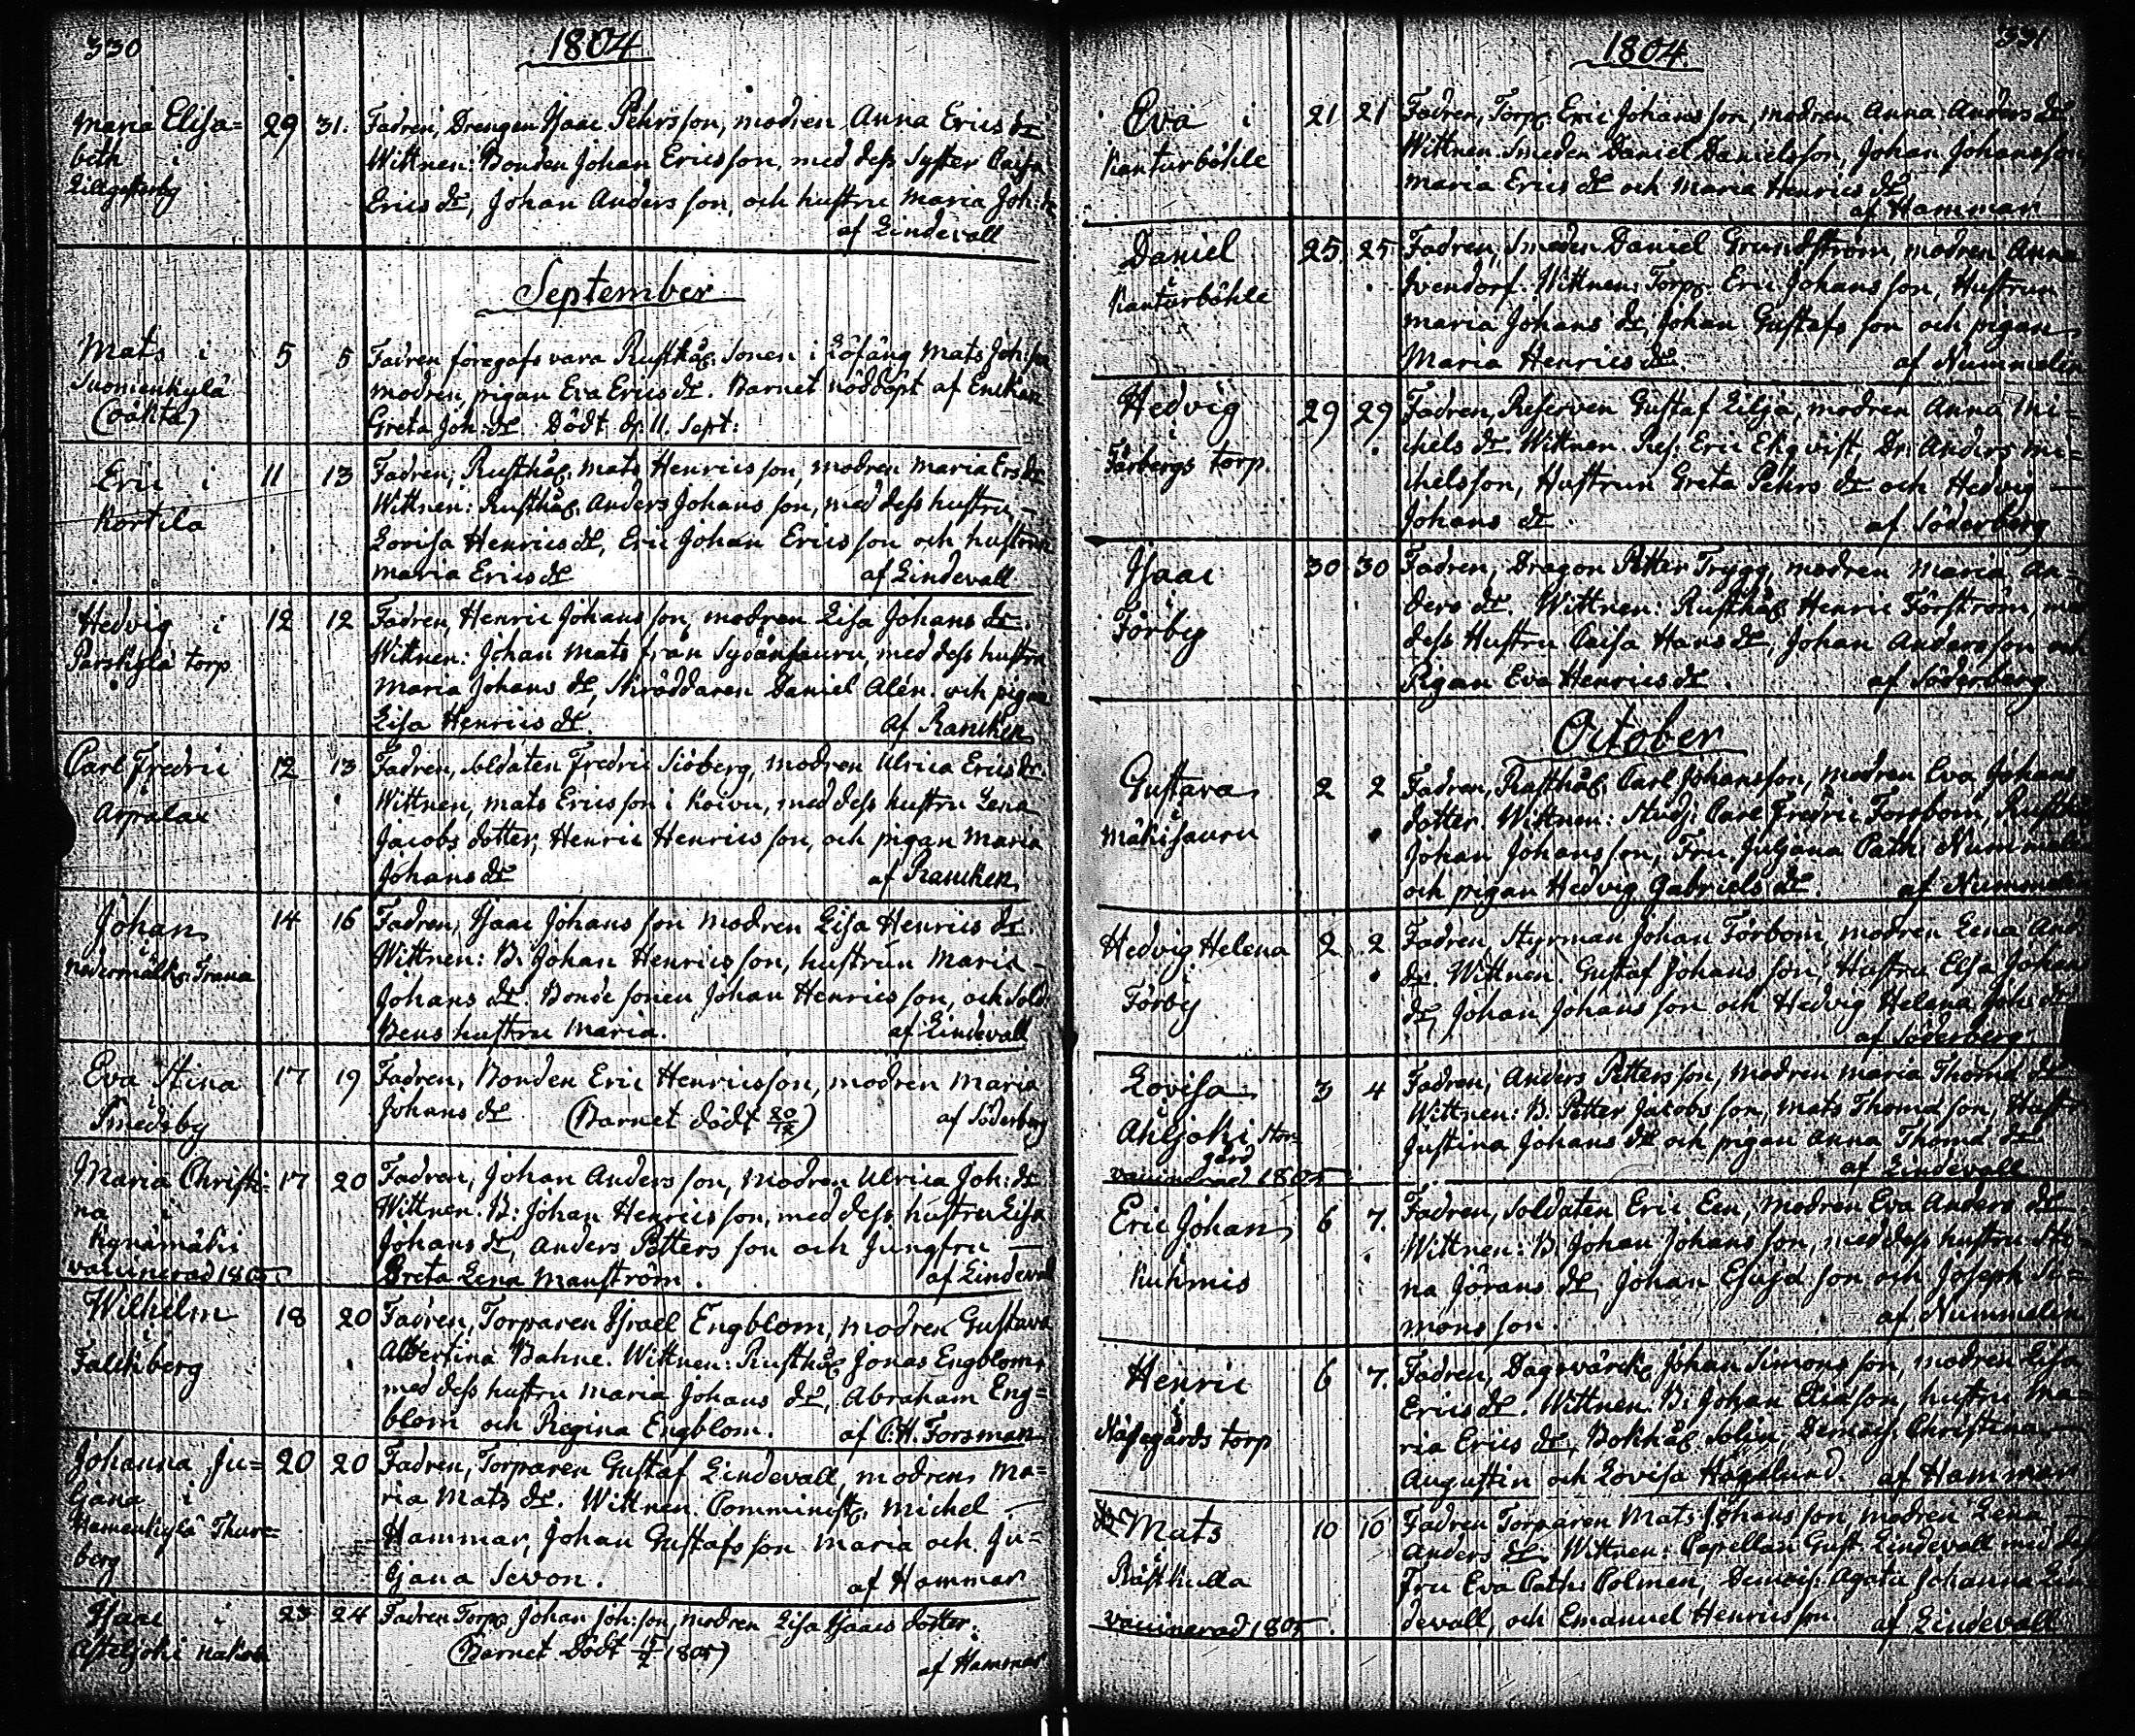 330
1804
Maria Elisa=
beth i
Lillgesterby
29 31. Fadren, Drengen Isaac Pehrsson, modren Anna Erics dr
Wittnen: Bonden Johan Ericsson, med dess Syster Caisa
Erics dr, Johan Anders son, och hustru Maria Joh: dr
af Lindevall
September
Mats i
Suomenkylä
(oäkta)
5 5 Fadren föregafs vara Rusthåll. Sonen i Löfång Mats Joh:son
modren pigan Eva Erics dr. Barnet nöddöpt af Enkan
Greta Joh: dr. Dödt d: 11. Sept:
Eric i
Kortila
11 13 Fadren, Rusthåll. Mats Henrics son, modren Maria Ers dr
Wittnen: Rusthåll. Anders Johans son, med dess hustru
Lovisa Henrics dr, Eric Johan Erics son och hustrun
Maria Erics dr af Lindevall
Hedvig i
Parskylä torp
12 12 Fadren, Henric Johans son, modren Lisa Johans dr.
Wittnen: Johan Mats från Sydänsauru, med dess hustru
Maria Johans dr, Skräddaren Daniel Alén. och pigan
Lisa Henrics dr. af Rancken
Carl Fredric
i
Arpalax
12 13 Fadren, Soldaten Fredric Siöberg, modren Ulrica Erics dr.
Wittnen, Mats Erics son i Koivu, med dess hustru Lena
Jacobs dotter, Henric Henrics son, och pigan Maria
Johans dr af Rancken
Johan
i
Nedermälkz. Trana
14 16 Fadren, Isaac Johans son modren Lisa Henrics dr.
Wittnen: B. Johan Henrics son, hustrun Maria
Johans dr. Bonde sonen Johan Henrics son, och Sold:
Bens hustru Maria. af Lindevall
Eva Stina
i
Smedsby
17 19 Fadren, Bonden Eric Henricsson, modren Maria
Johans dr (Barnet dödt 20/12) af Söderberg
Maria Christi=
na i
Kynämäki
vaccinerad 1805
17 20 Fadren, Johan Anders son, modren Ulrica Joh: dr
Wittnen. B: Johan Henrics son, med dess hustru Lisa
Johans dr, Anders Petters son och Jungfru
Greta Lena Manström. af Lindevall
Wilhelm
i
Falckberg
18 20 Fadren, Torparen Israel Engblom, modren Gustava
Albertina Bahne. Wittnen: Rusthåll Jonas Engblom,
med dess hustru Maria Johans dr, Abraham Eng=
blom och Regina Engblom. af C.H. Forsman
Johanna Ju=
liana i
Hamenkylä Thure=
berg
20 20 Fadren, Torparen Gustaf Lindevall, modren Ma=
ria Mats dr. Wittnen. Comminist. Michel
Hammar, Johan Gustafs son Maria och Ju=
liana Sevon. af Hammar
Isaac i
Asteljoki
23 24 Fadren Torp. Johan Joh:son, modren Lisa Isaacs dotter.
(Barnet dödt 1805) af Hammar
331
1804.
Eva i
Kanturböhle
21 21 Fadren, Torp. Eric Johans son, modren Anna Anders dr
Wittnen Smeden Daniel Danielsson, Johan Johansson
Maria Erics dr och Maria Henrics dr
af Hammar
Daniel
i
Kanturböhle
25 25 Fadren, Smeden Daniel Grundström, modren Anna
Ivendorf. Wittnen: Torp. Eric Johans son, Hustrun
Maria Johans dr, Johan Gustafs son och pigan
Maria Henrics dr. af Nummelin
Hedvig
i
Förbergs torp.
29 29 Fadren, Reserven Gustaf Lilja, modren Anna Mi=
chels dr. Wittnen. Res: Eric Ekqvist, Dr. Anders Mi=
chelsson, Hustrun Greta Pehrs dr och Hedvig
Johans dr. af Söderberg
Isaac
i
Förby
30 30 Fadren, Dragon Petter Trygg, modren Maria An=
ders dr. Wittnen: Rusthåll Henric Förström, med
dess Hustru Caisa Hans dr, Johan Andersson och
Pigan Eva Henrics dr. af Söderberg
October
Gustava
i
Mäkisauru
2 2 Fadren, Rusthåll. Carl Johansson, modren Eva Johans
dotter. Wittnen: Stud: Carl Fredric Forsbom, Rusthåll
Johan Johans son, Fru Juliana Cath: Nummelin
och pigan Hedvig Gabriels dr. af Nummelin
Hedvig Helena
i
Förby
2 2 Fadren, Styrman Johan Förbom, modren Lena And:
dr. Wittnen. Gustaf Johans son, Hustru Elsa Johans
dr, Johan Johans son och Hedvig Helena Joh: dr
af Söderberg
Lovisa
i
Ahljoki Stor=
gård
vaccinerad 1805
3 4 Fadren, Anders Petters son, modren Maria Thoma dr
Wittnen: B. Petter Jacobs son, Mats Thoma son, Hustr
Justina Johans dr och pigan Anna Thoma dr
af Lindevall
Eric Johan
i
Kuhmis
6 7. Fadren, Soldaten Eric Een, modren Eva Anders dr.
Wittnen: B. Johan Johans son, med dess hustru Sti=
na Jörans dr, Johan Esaja son och Joseph Si=
mons son. af Nummelin
Henric
i
Näsegårds torp
6 7. Fadren, Dagsvärck. Johan Simons son, modren Lisa
Erics dr. Wittnen. B. Johan Eliasson, hustru Ma=
ria Erics dr, Bokhåll Solin, Demois. Christina
Augustin och Lovisa Högelund. af Hammar
Mats
i
Råstkulla
vaccinerad 1805.
10 10 Fadren Torparen Mats Johans son, modren Lena
Anders dr. Wittnen: Capellan Gust. Lindevall med dess
Fru Eva Cath: Polmen, Demois: Agata Johanna Lin=
devall, och Emanuel Henrics son. af Lindevall